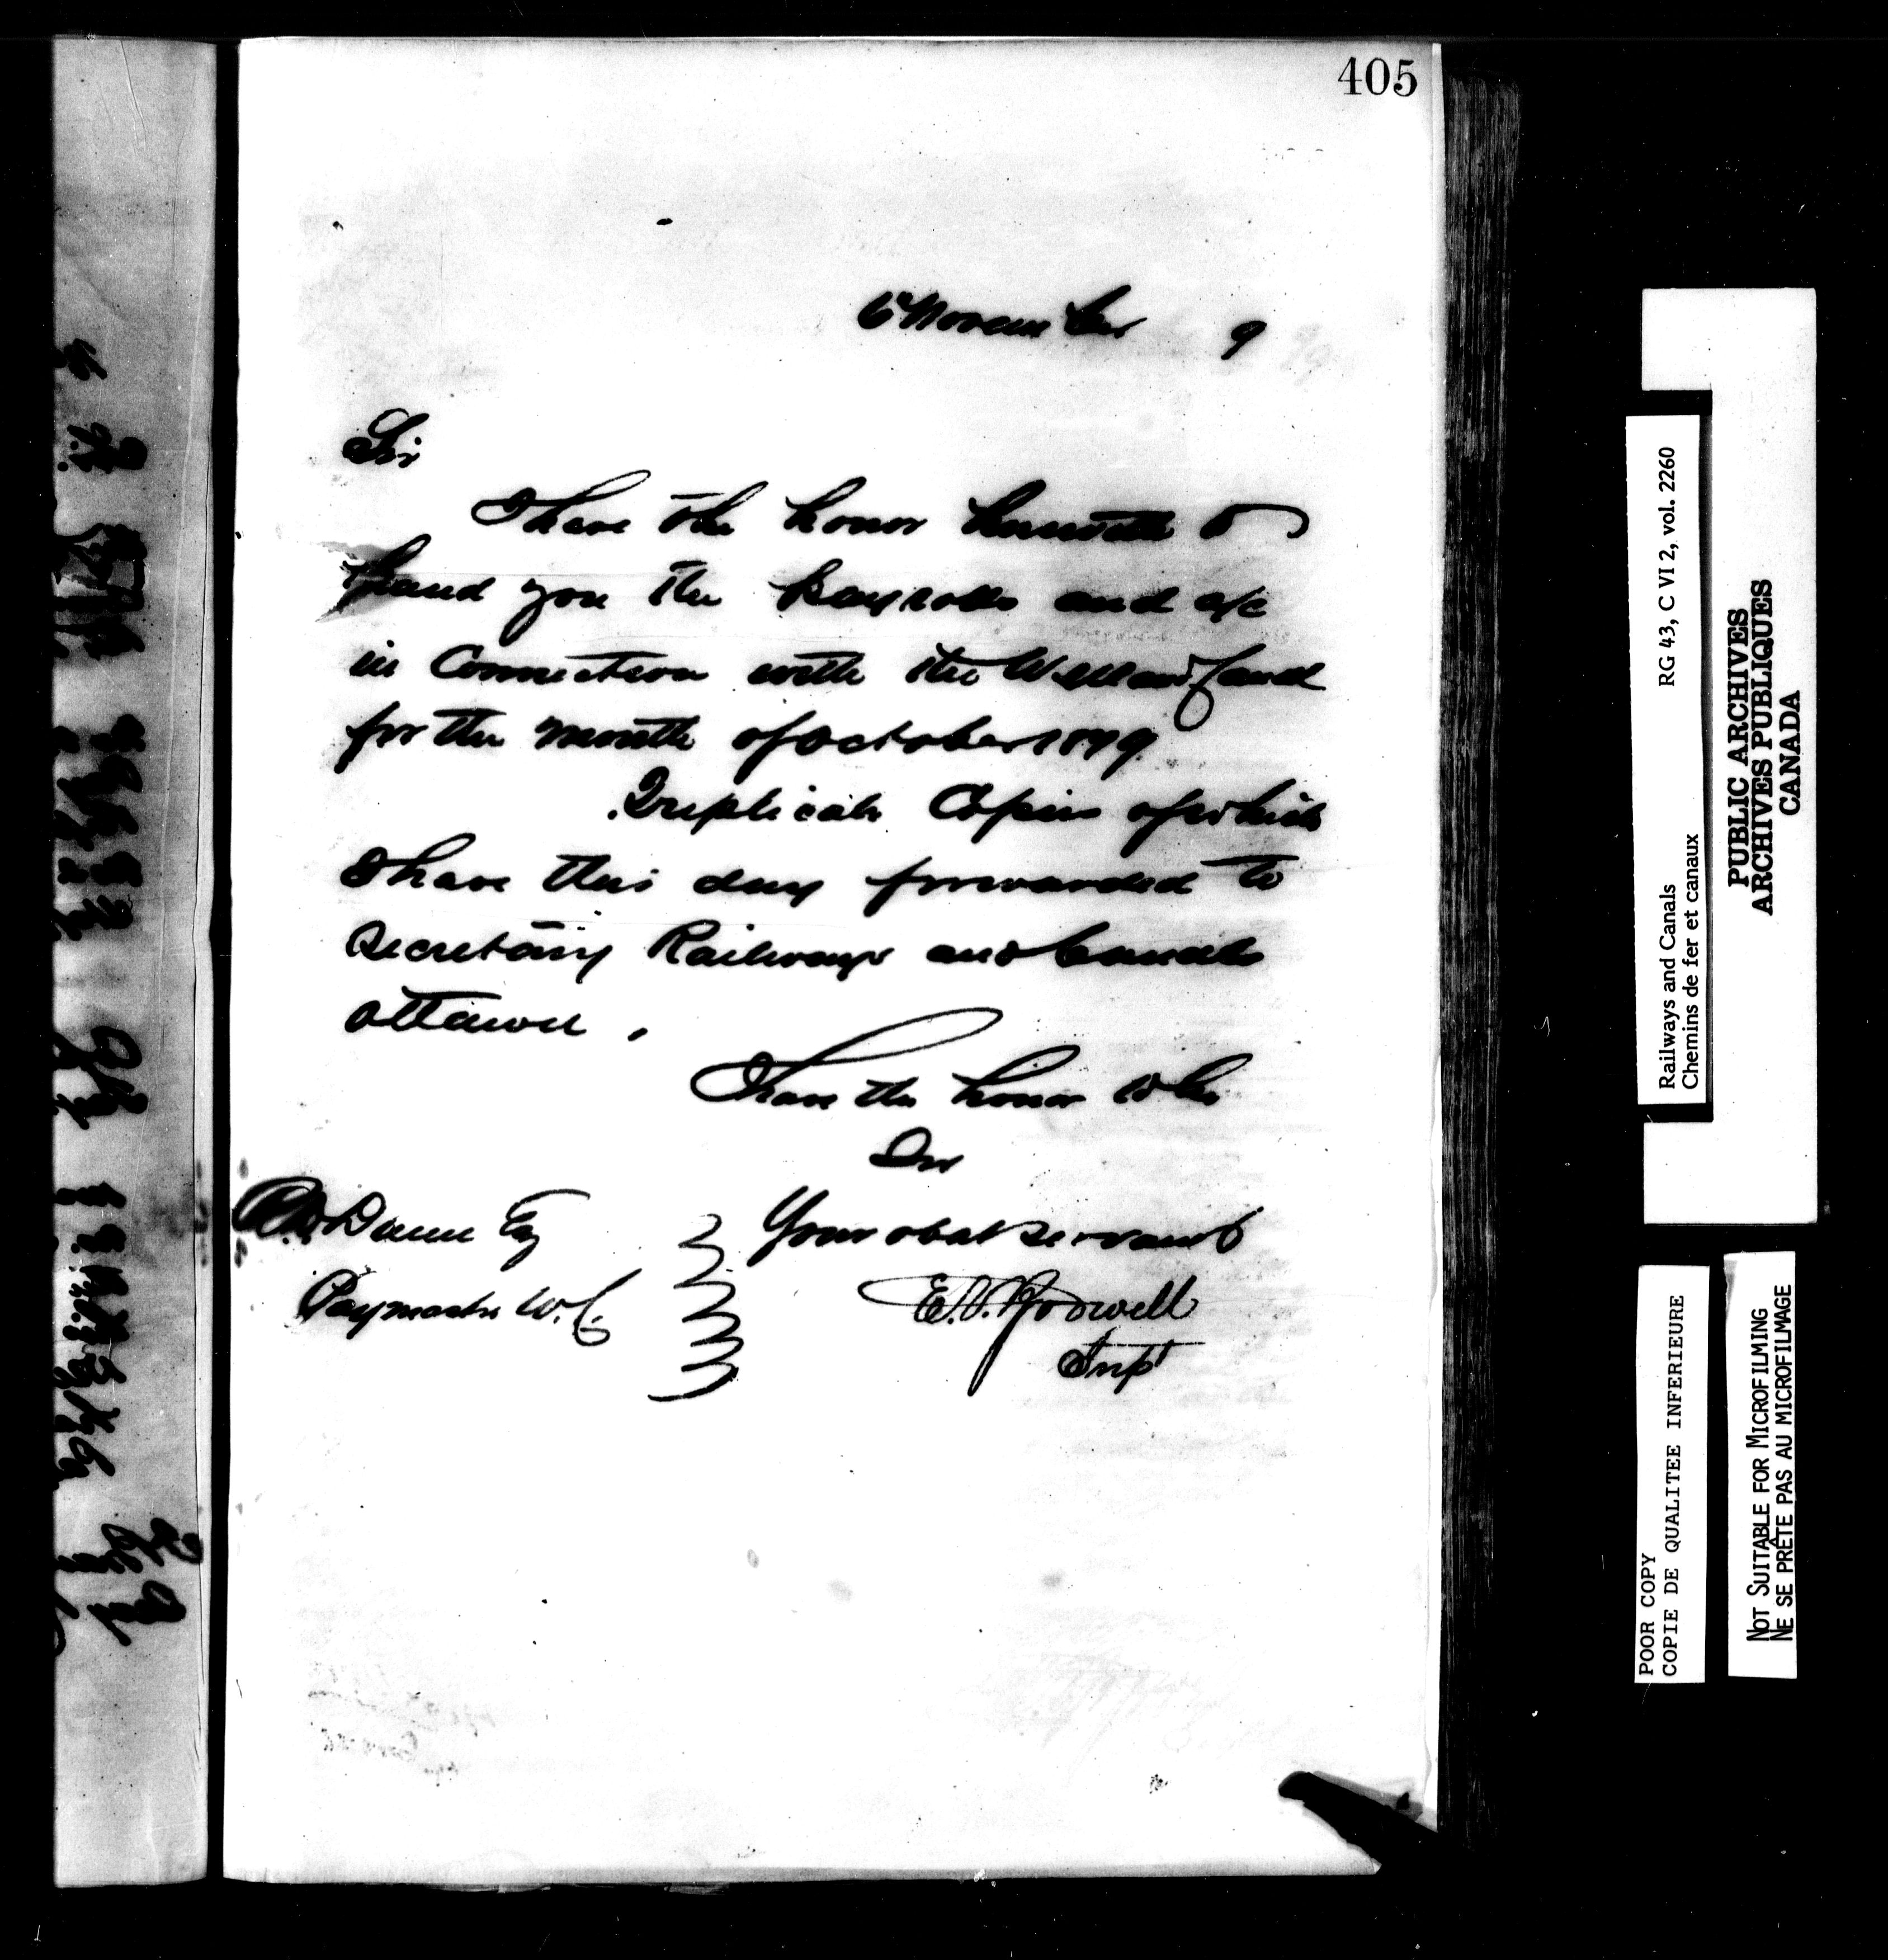 405
6th November 9
Sir
I have the honor herewith to
hand you the Payrolls and a/c
in Connection with the Welland Canal
for the month of October 1879
Triplicate Copies of which
I have this day forwarded to
Secretary Railways and Canals
Ottawa.
I have the honor to be
Sir
Your obdt servant
Dunn Esq
Paymaster W.C.
E.V. Bodwell
Supt
RG 43, C VI 2, vol. 2260
Railways and Canals
Chemins de fer et canaux
PUBLIC ARCHIVES
ARCHIVES PUBLIQUES
CANADA
POOR COPY
COPIE DE QUALITEE INFERIEURE
NOT SUITABLE FOR MICROFILMING
NE SE PRÊTE PAS AU MICROFILMAGE